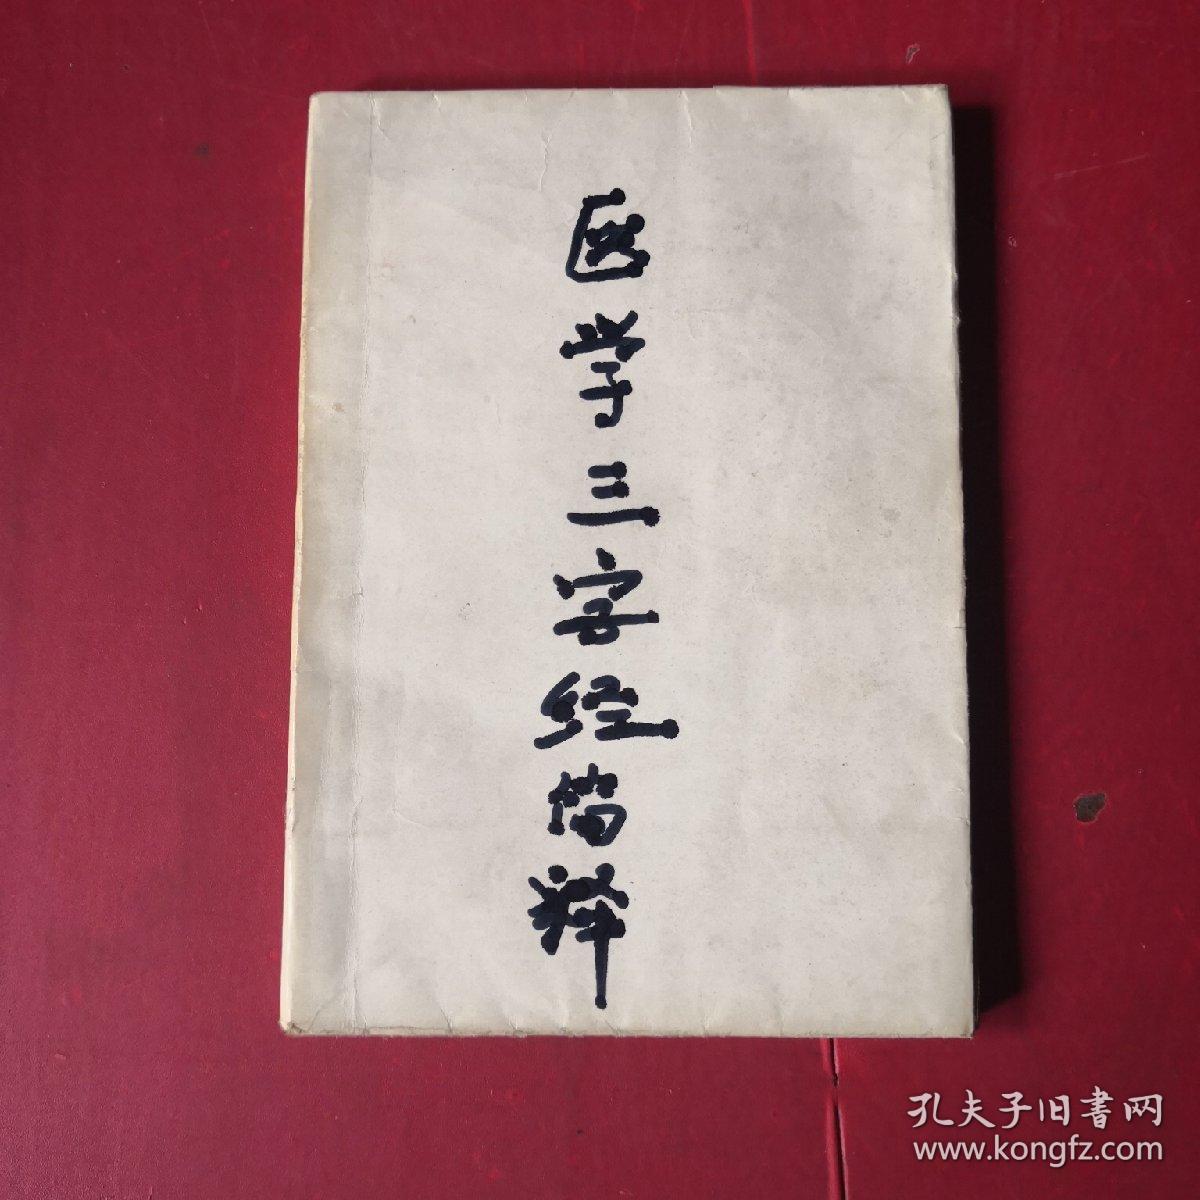 医学三字经简释
孔夫子旧書网
www.kongfz.com